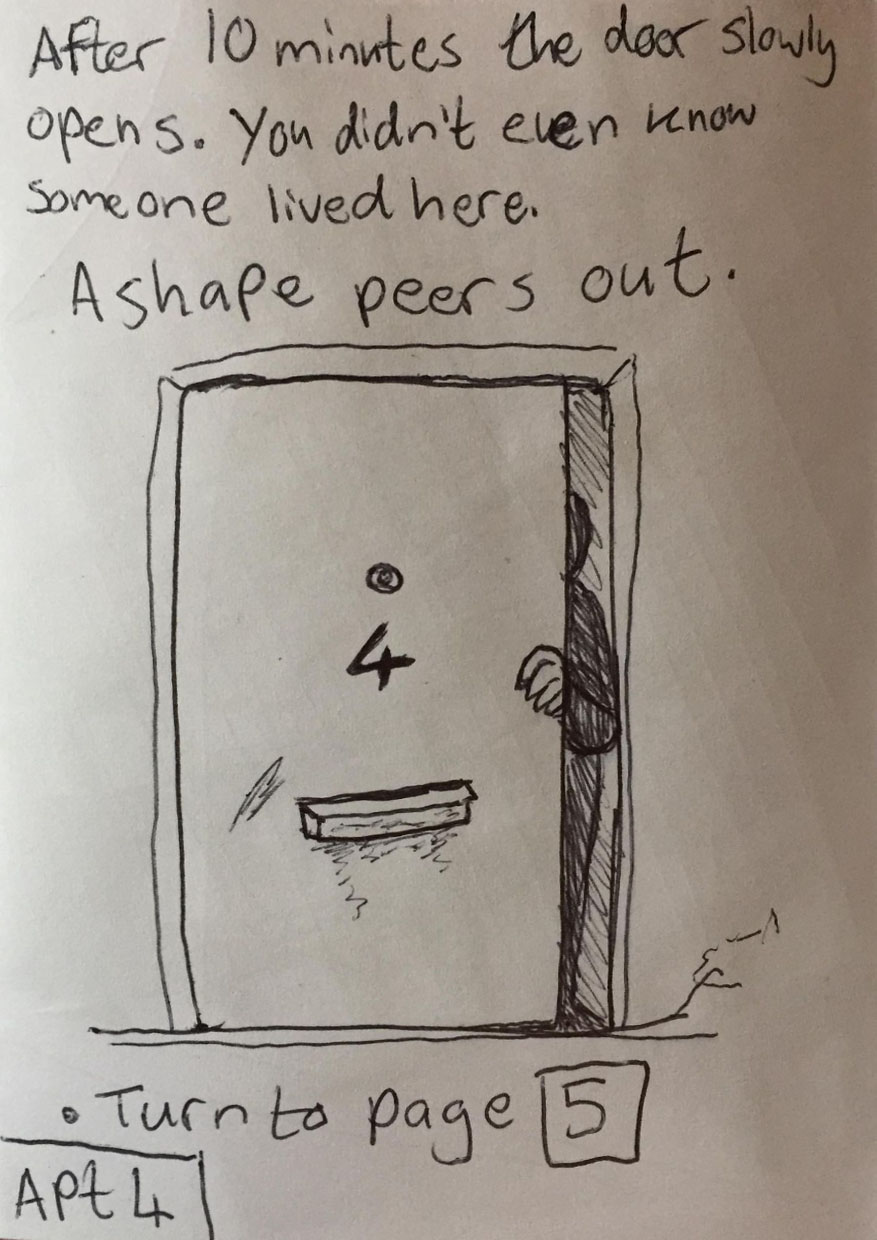 After 10 minutes the door slowly
opens. You didn't even know
someone lived here.
A shape peers out.
4
• Turn to page 5
Apt 4